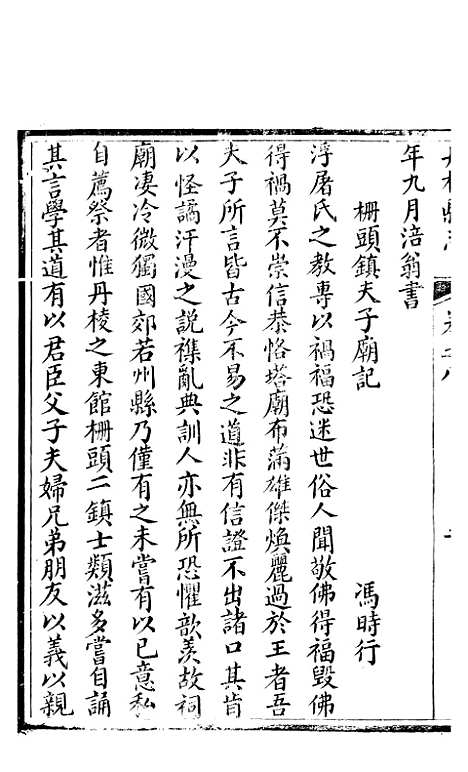 年九月涪翁書
柵頭鎮夫子廟記 馮時行
浮屠氏之教專以禍福恐迷世俗人聞敬佛得福毀佛
得禍莫不崇信恭恪塔廟布滿雄傑煥麗過於王者吾
夫子所言皆古今不易之道非有信證不出諸口其肯
以怪譎汗漫之說襍亂典訓人亦無所恐懼歆羡故祠
廟凄冷微獨國郊若州縣乃僅有之未嘗有以已意私
自薦祭者惟丹棱之東館柵頭二鎮士類滋多嘗自誦
其言學其道有以君臣父子夫婦兄弟朋友以義以親